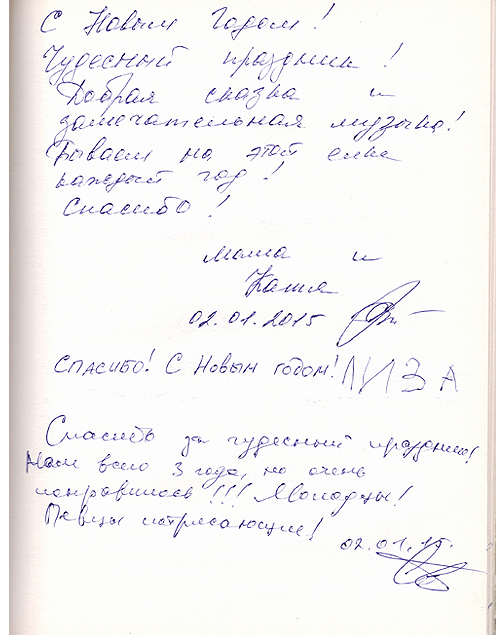 С Новым Годом!
Чудесный праздник!
Добрая сказка и
замечательная музыка!
Бываем на этой елке
каждый год!
Спасибо!
мама и
Катя
02.01.2015
СПАСИБО! С НОВЫМ ГОДОМ! ЛИЗА
Спасибо за чудесный праздник!
Нам всего 3 года, но очень
понравилось!!! Молодцы!
Певцы потрясающие!
02.01.15.